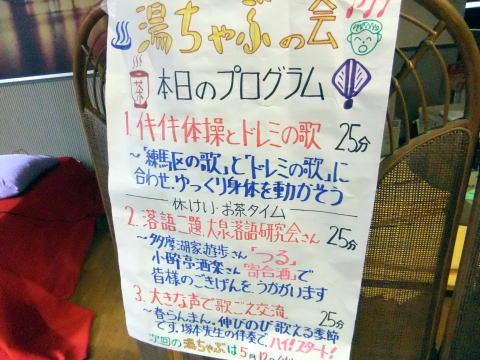 湯ちゃぶの会
茶
本日のプログラム
1.イキイキ体操とドレミの歌 25分
〜「練馬区の歌」と「ドレミの歌」に
合わせ、ゆっくり身体を動かそう
休けい・お茶タイム
2.落語二題、大泉落語研究会さん 25分
〜多摩湖家遊歩さん「つる」
小酔亭酒楽さん「寄合酒」で
皆様のごきげんを、うかがいます
3.大きな声で歌ごえ交流 25分
〜春らんまん。伸びのび歌える季節
です。塚本先生の伴奏で、ハイ!スタート!
次回の湯ちゃぶは5月12日